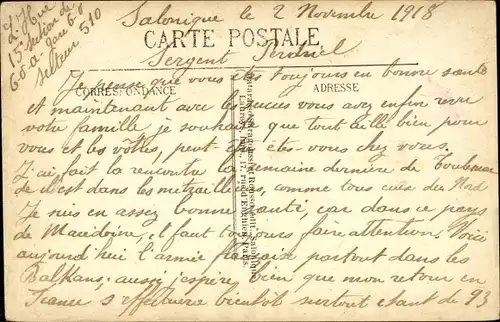 L. Hue
15e Section de
G.O.A. gare G-O
Secteur 510
Salonique le 2 Novembre 1918
CARTE POSTALE
Sergent
CORRESPONDANCE
ADRESSE
Je pense que vous êtes toujours en bonne santé
et maintenant avec les succès vous avez enfin revu
votre famille, je souhaite que tout aille bien pour
vous et les vôtres, peut être êtes-vous chez vous.
J'ai fait la rencontre la semaine dernière de
dans les mitrailleurs, comme tous ceux du Nord
Je suis en assez bonne santé, car dans ce pays
de Macédoine, il faut toujours faire attention. Voici
aujourd'hui l'armée française partout dans les
Balkans; aussi j'espère bien que mon retour en
France s'effectuera bientôt surtout étant de 93